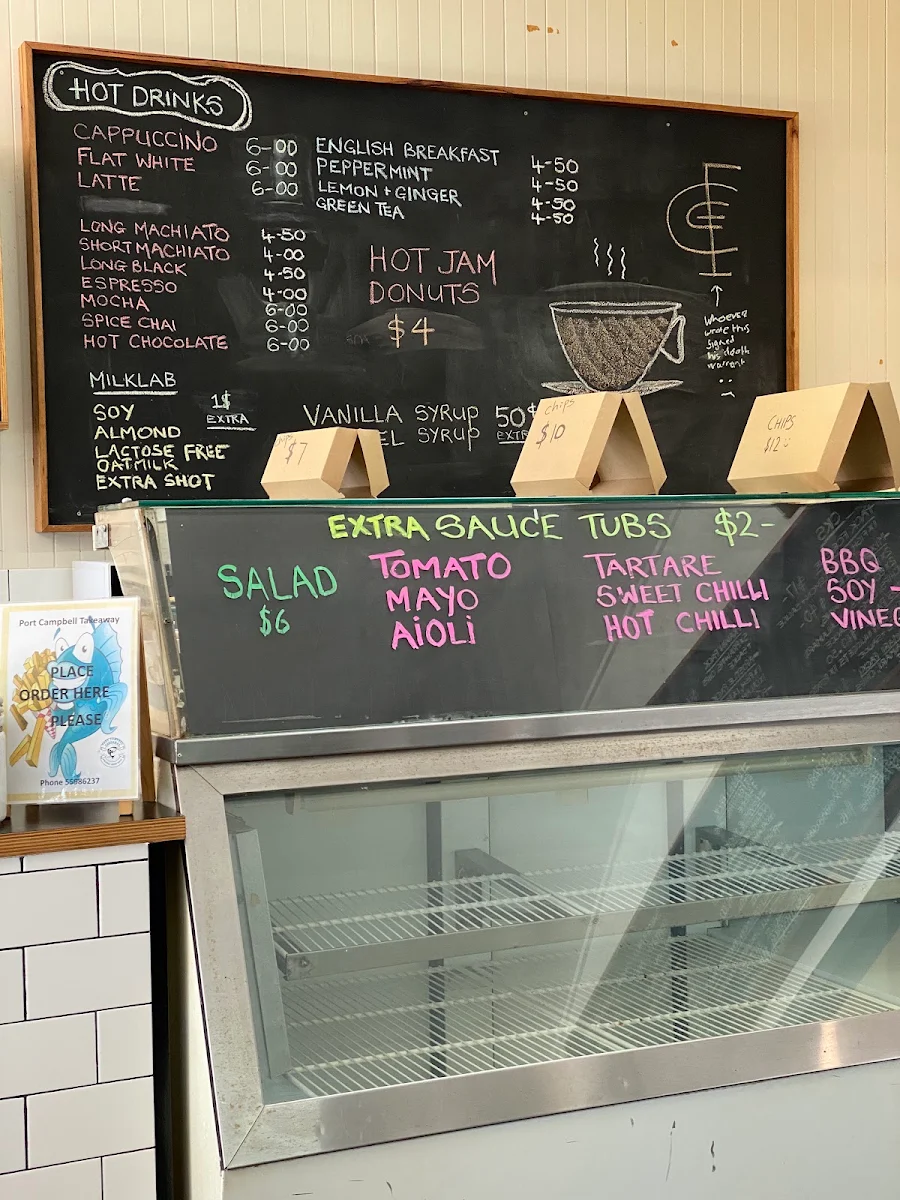 HOT DRINKS
CAPPUCCINO 6-00
FLAT WHITE 6-00
LATTE 6-00
LONG MACHIATO 4-50
SHORT MACHIATO 4-00
LONG BLACK 4-50
ESPRESSO 4-00
MOCHA 6-00
SPICE CHAI 6-00
HOT CHOCOLATE 6-00
ENGLISH BREAKFAST 4-50
PEPPERMINT 4-50
LEMON + GINGER 4-50
GREEN TEA 4-50
HOT JAM
DONUTS
$4
whoever
wrote this
signed
his death
warrent
MILKLAB
SOY
ALMOND
LACTOSE FREE
OATMILK
EXTRA SHOT
1$
EXTRA
VANILLA SYRUP 50¢
EL SYRUP EXTR
$7
chips
$10
CHIPS
$12
EXTRA SAUCE TUBS $2-
SALAD
$6
TOMATO
MAYO
AiOLi
TARTARE
SWEET CHILLI
HOT CHILLI
BBQ
SOY -
VINEG
Port Campbell Takeaway
PLACE
ORDER HERE
PLEASE
Phone 55986237